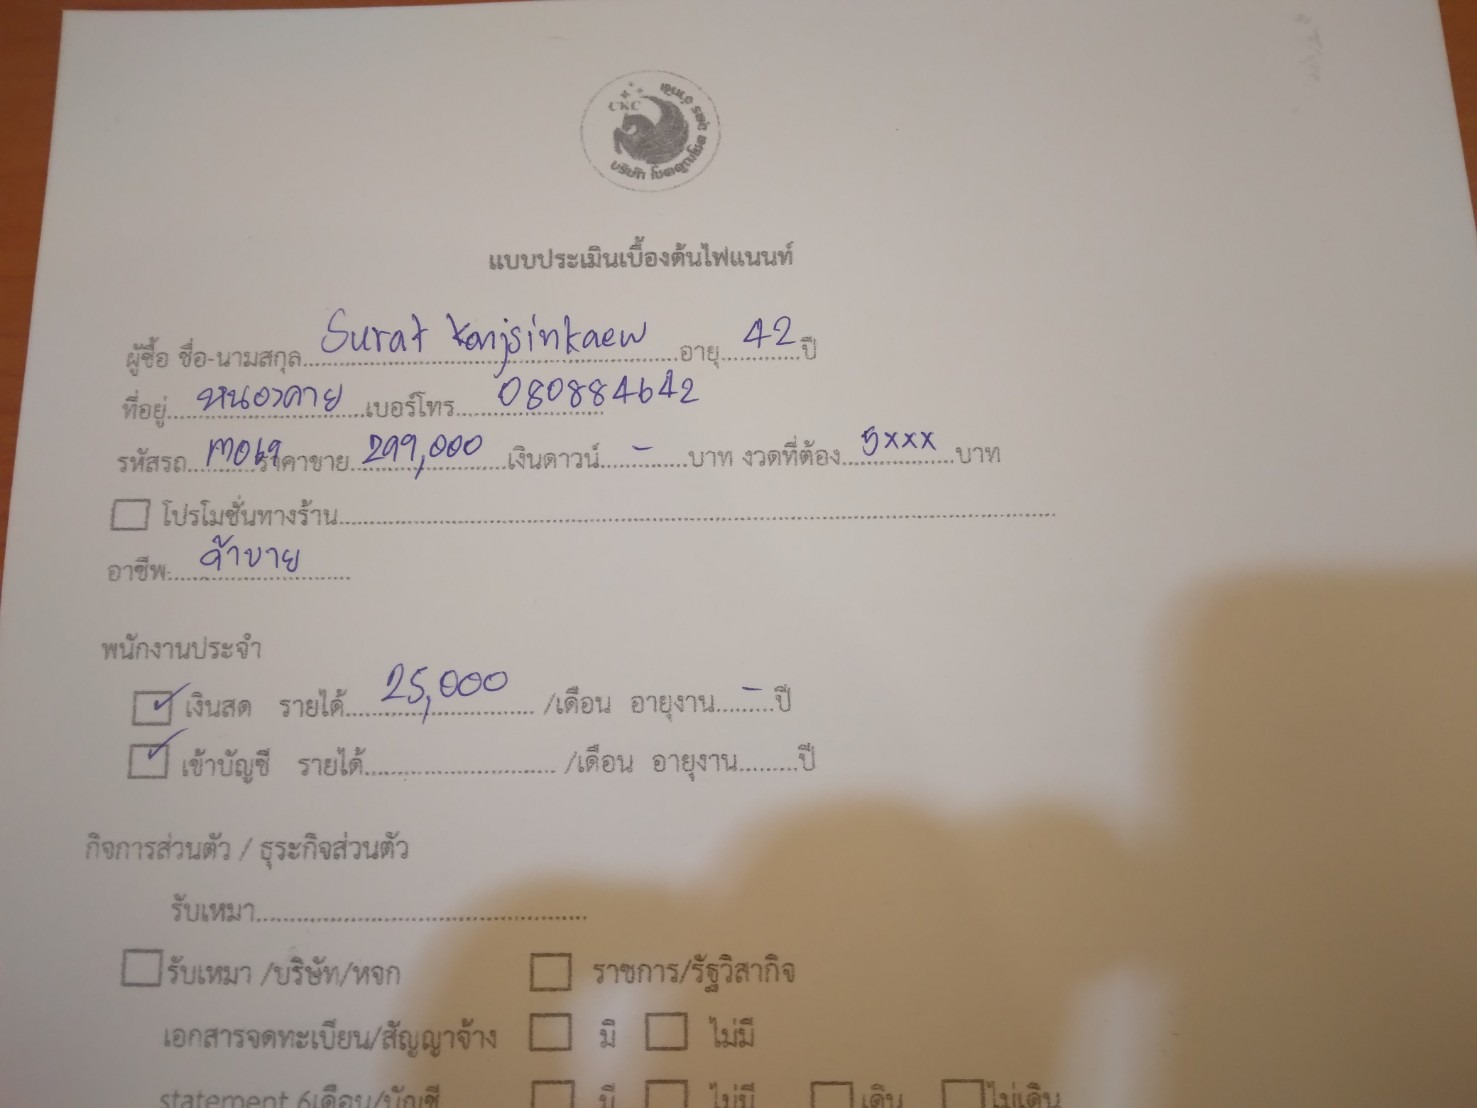 CKC
บริษัท โชคคูณโชค อุดร จำกัด
แบบประเมินเบื้องต้นไฟแนนท์
ผู้ซื้อ ชื่อ-นามสกุล Surat Kanjsinkaew อายุ 42 ปี
ที่อยู่ หนองคาย เบอร์โทร 080884642
รหัสรถ M069 ราคาขาย 299,000 เงินดาวน์ - บาท งวดที่ต้อง 5xxx บาท
โปรโมชั่นทางร้าน
อาชีพ ค้าขาย
พนักงานประจำ
เงินสด รายได้ 25,000 /เดือน อายุงาน - ปี
เข้าบัญชี รายได้ /เดือน อายุงาน ปี
กิจการส่วนตัว / ธุระกิจส่วนตัว
รับเหมา
รับเหมา /บริษัท/หจก ราชการ/รัฐวิสากิจ
เอกสารจดทะเบียน/สัญญาจ้าง มี ไม่มี
statement 6เดือน/บัญชี มี ไม่มี เดิน ไม่เดิน